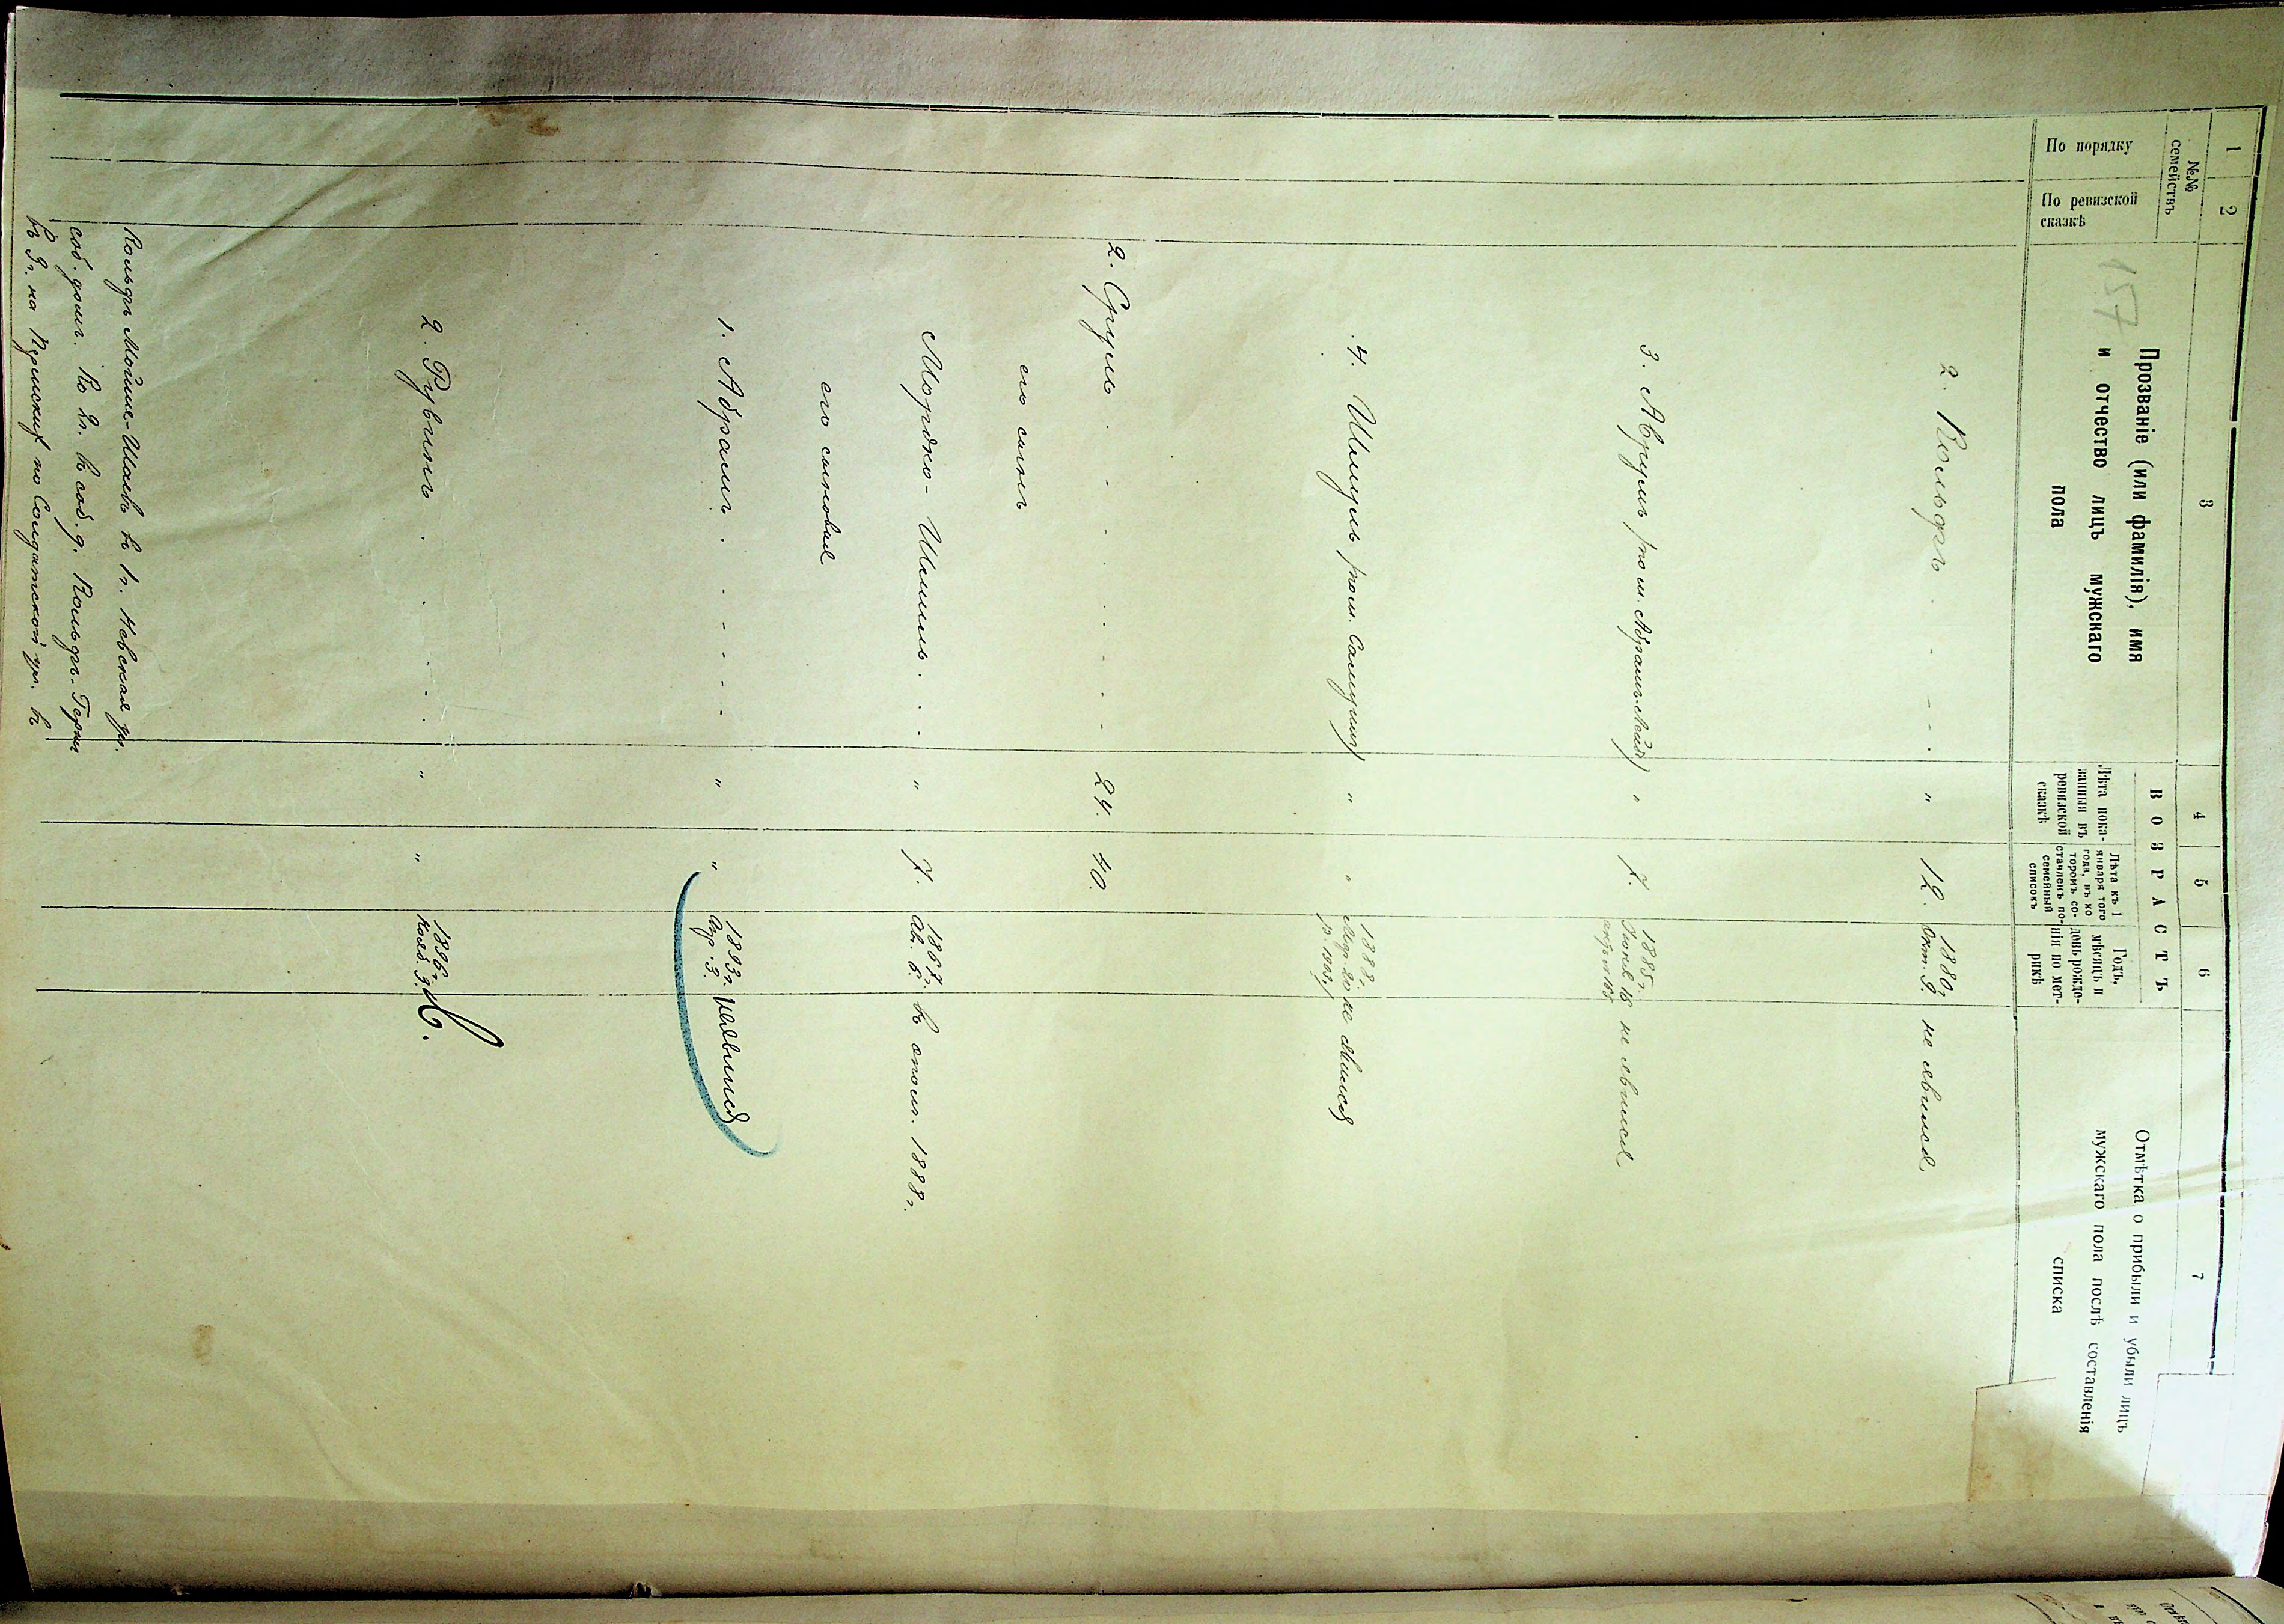 1 2 3 4 5 6 7
№№ семействъ
По порядку
По ревизской
сказкѣ
157
Прозваніе (или фамилія), имя
и отчество лицъ мужскаго
пола
ВОЗРАСТЪ
Лѣта пока-
занныя въ
ревизской
сказкѣ
Лѣта къ 1
января того
года, въ ко
торомъ со-
ставленъ по-
семейный
списокъ
Годъ,
мѣсяцъ и
день рожде-
нія по мет-
рикѣ
Отмѣтка о прибыли и убыли лицъ
мужскаго пола послѣ составленія
списка
2. Вольфъ " 12. 1880 г. Окт. 9. не явился
3. Аврумъ " 7. 1885 г. Іюня 18 не явился
4. Шмуль " " 1888 г. не явился
2. Сруль 24. 40.
его сынъ
Мордко-Шмиль " 7. 1867 г. Ав. 6. въ 1888 г.
его сыновья
1. Абрамъ " " 1893 г. Апр. 3. явился
2. Рувинъ " " 1896 г.
Вольфъ Мойше- въ 1 г. Невская ул.
соб. домъ. Во 2 г. въ соб. д. Вольфъ-
въ 3 г. на по Солдатской ул. въ